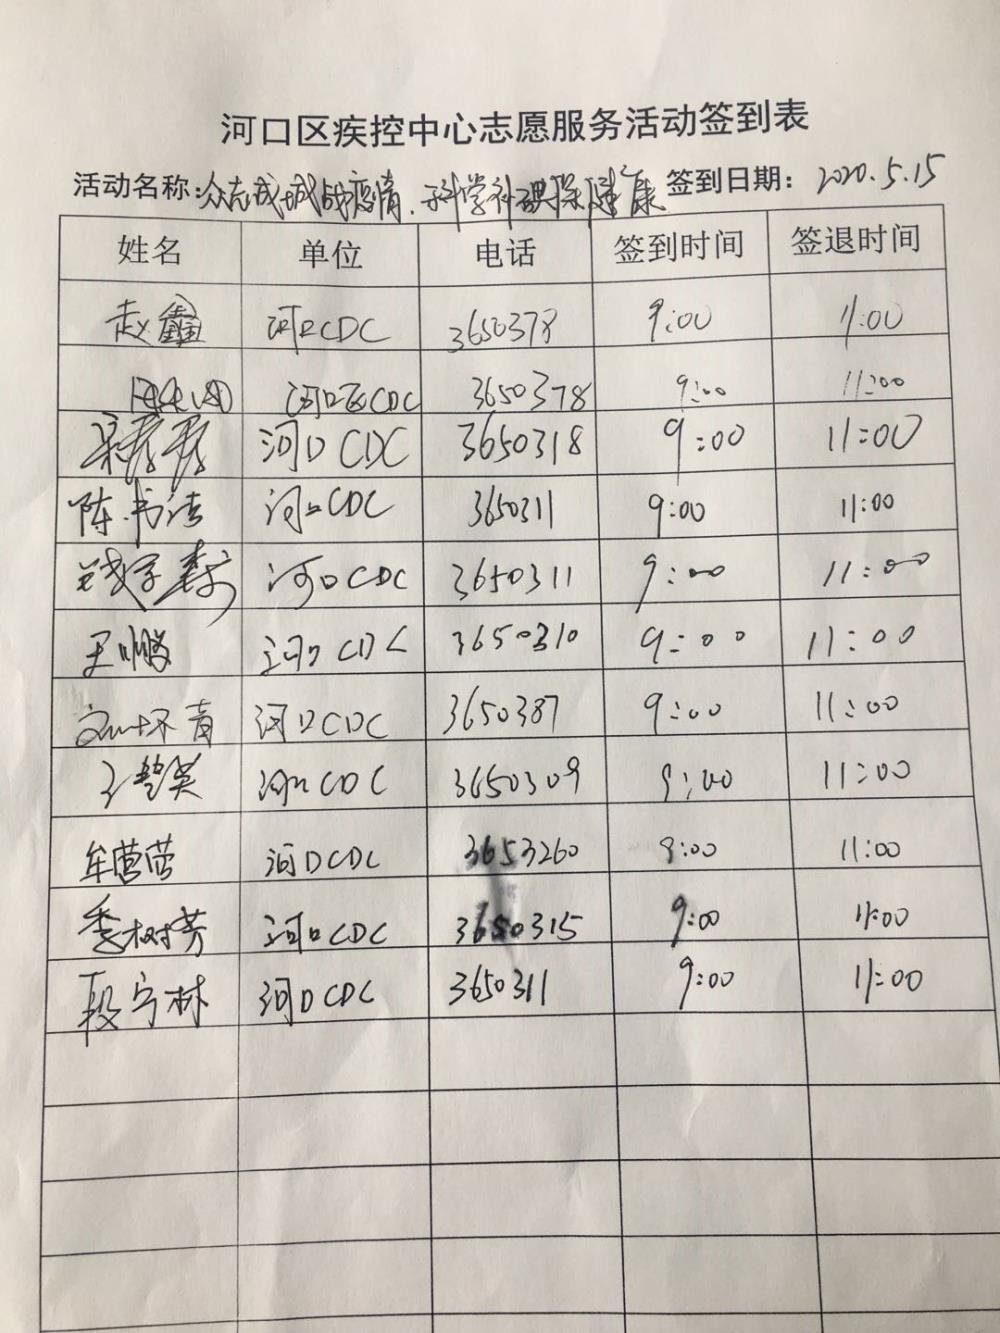 河口区疾控中心志愿服务活动签到表
活动名称:众志成城战疫情.科学补碘保健康 签到日期: 2020.5.15
姓名 单位 电话 签到时间 签退时间
赵鑫 河口CDC 3650378 9:00 11:00
河口区CDC 3650378 9:00 11:00
河口CDC 3650318 9:00 11:00
陈书洁 河口CDC 3650311 9:00 11:00
河口CDC 3650311 9:00 11:00
王鹏 河口CDC 3650310 9:00 11:00
河口CDC 3650387 9:00 11:00
王楚英 河口CDC 3650309 9:00 11:00
牟营营 河口CDC 3653260 9:00 11:00
季树芳 河口CDC 3650315 9:00 11:00
段宁林 河口CDC 3650311 9:00 11:00